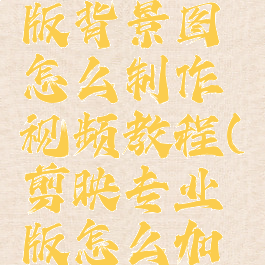 版背景图
怎么制作
视频教程(
剪映专业
版怎么加